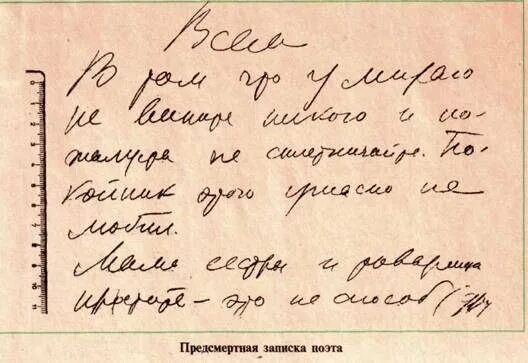 Всем
В том что умираю
не вините никого и по-
жалуйста не сплетничайте. По-
койник этого ужасно не
любил.
Мама сестры и товарищи
простите – это не способ (
Предсмертная записка поэта